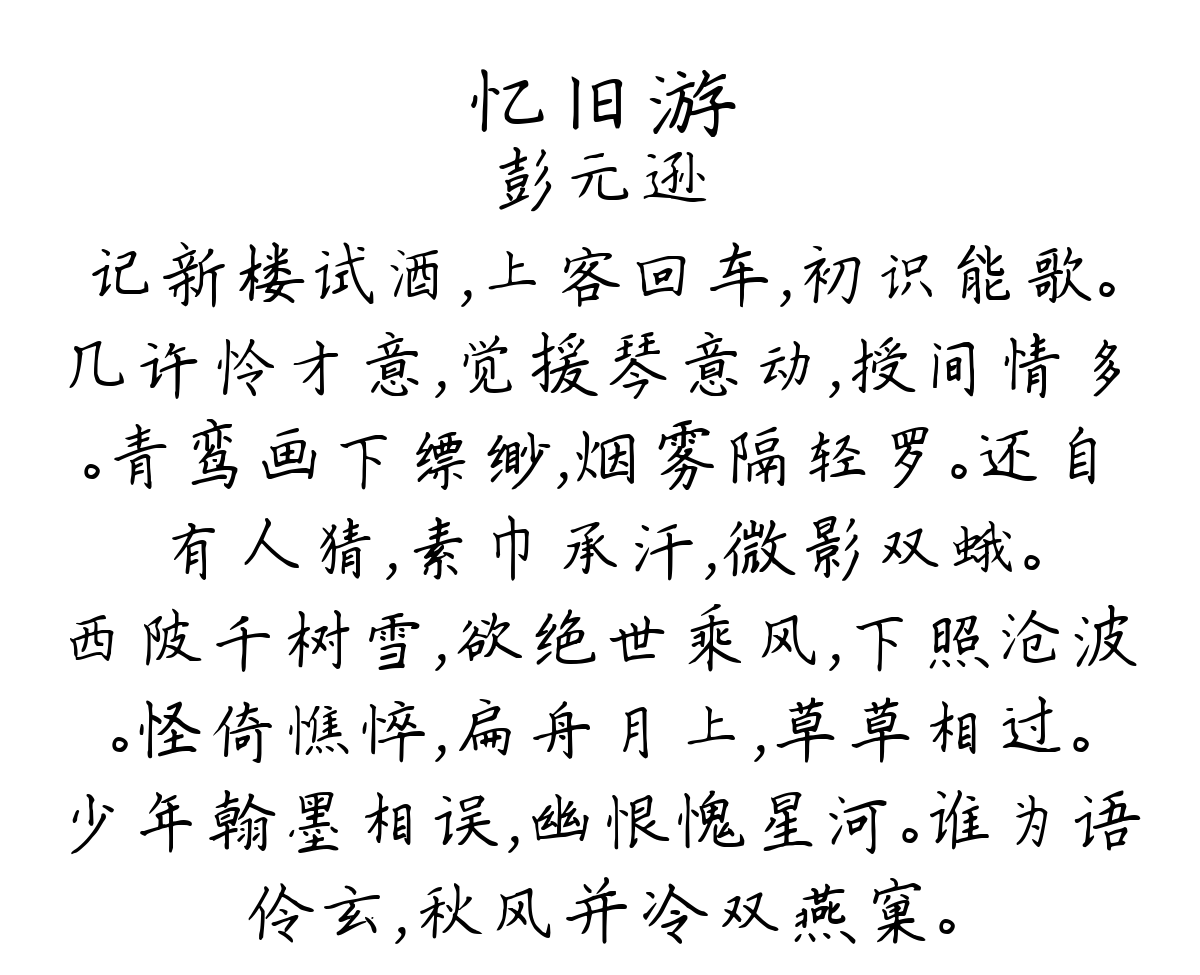 忆旧游
彭元逊
记新楼试酒,上客回车,初识能歌。
几许怜才意,觉援琴意动,授间情多
。青鸾画下缥缈,烟雾隔轻罗。还自
有人猜,素巾承汗,微影双蛾。
西陂千树雪,欲绝世乘风,下照沧波
。怪倚憔悴,扁舟月上,草草相过。
少年翰墨相误,幽恨愧星河。谁为语
伶玄,秋风并冷双燕窠。